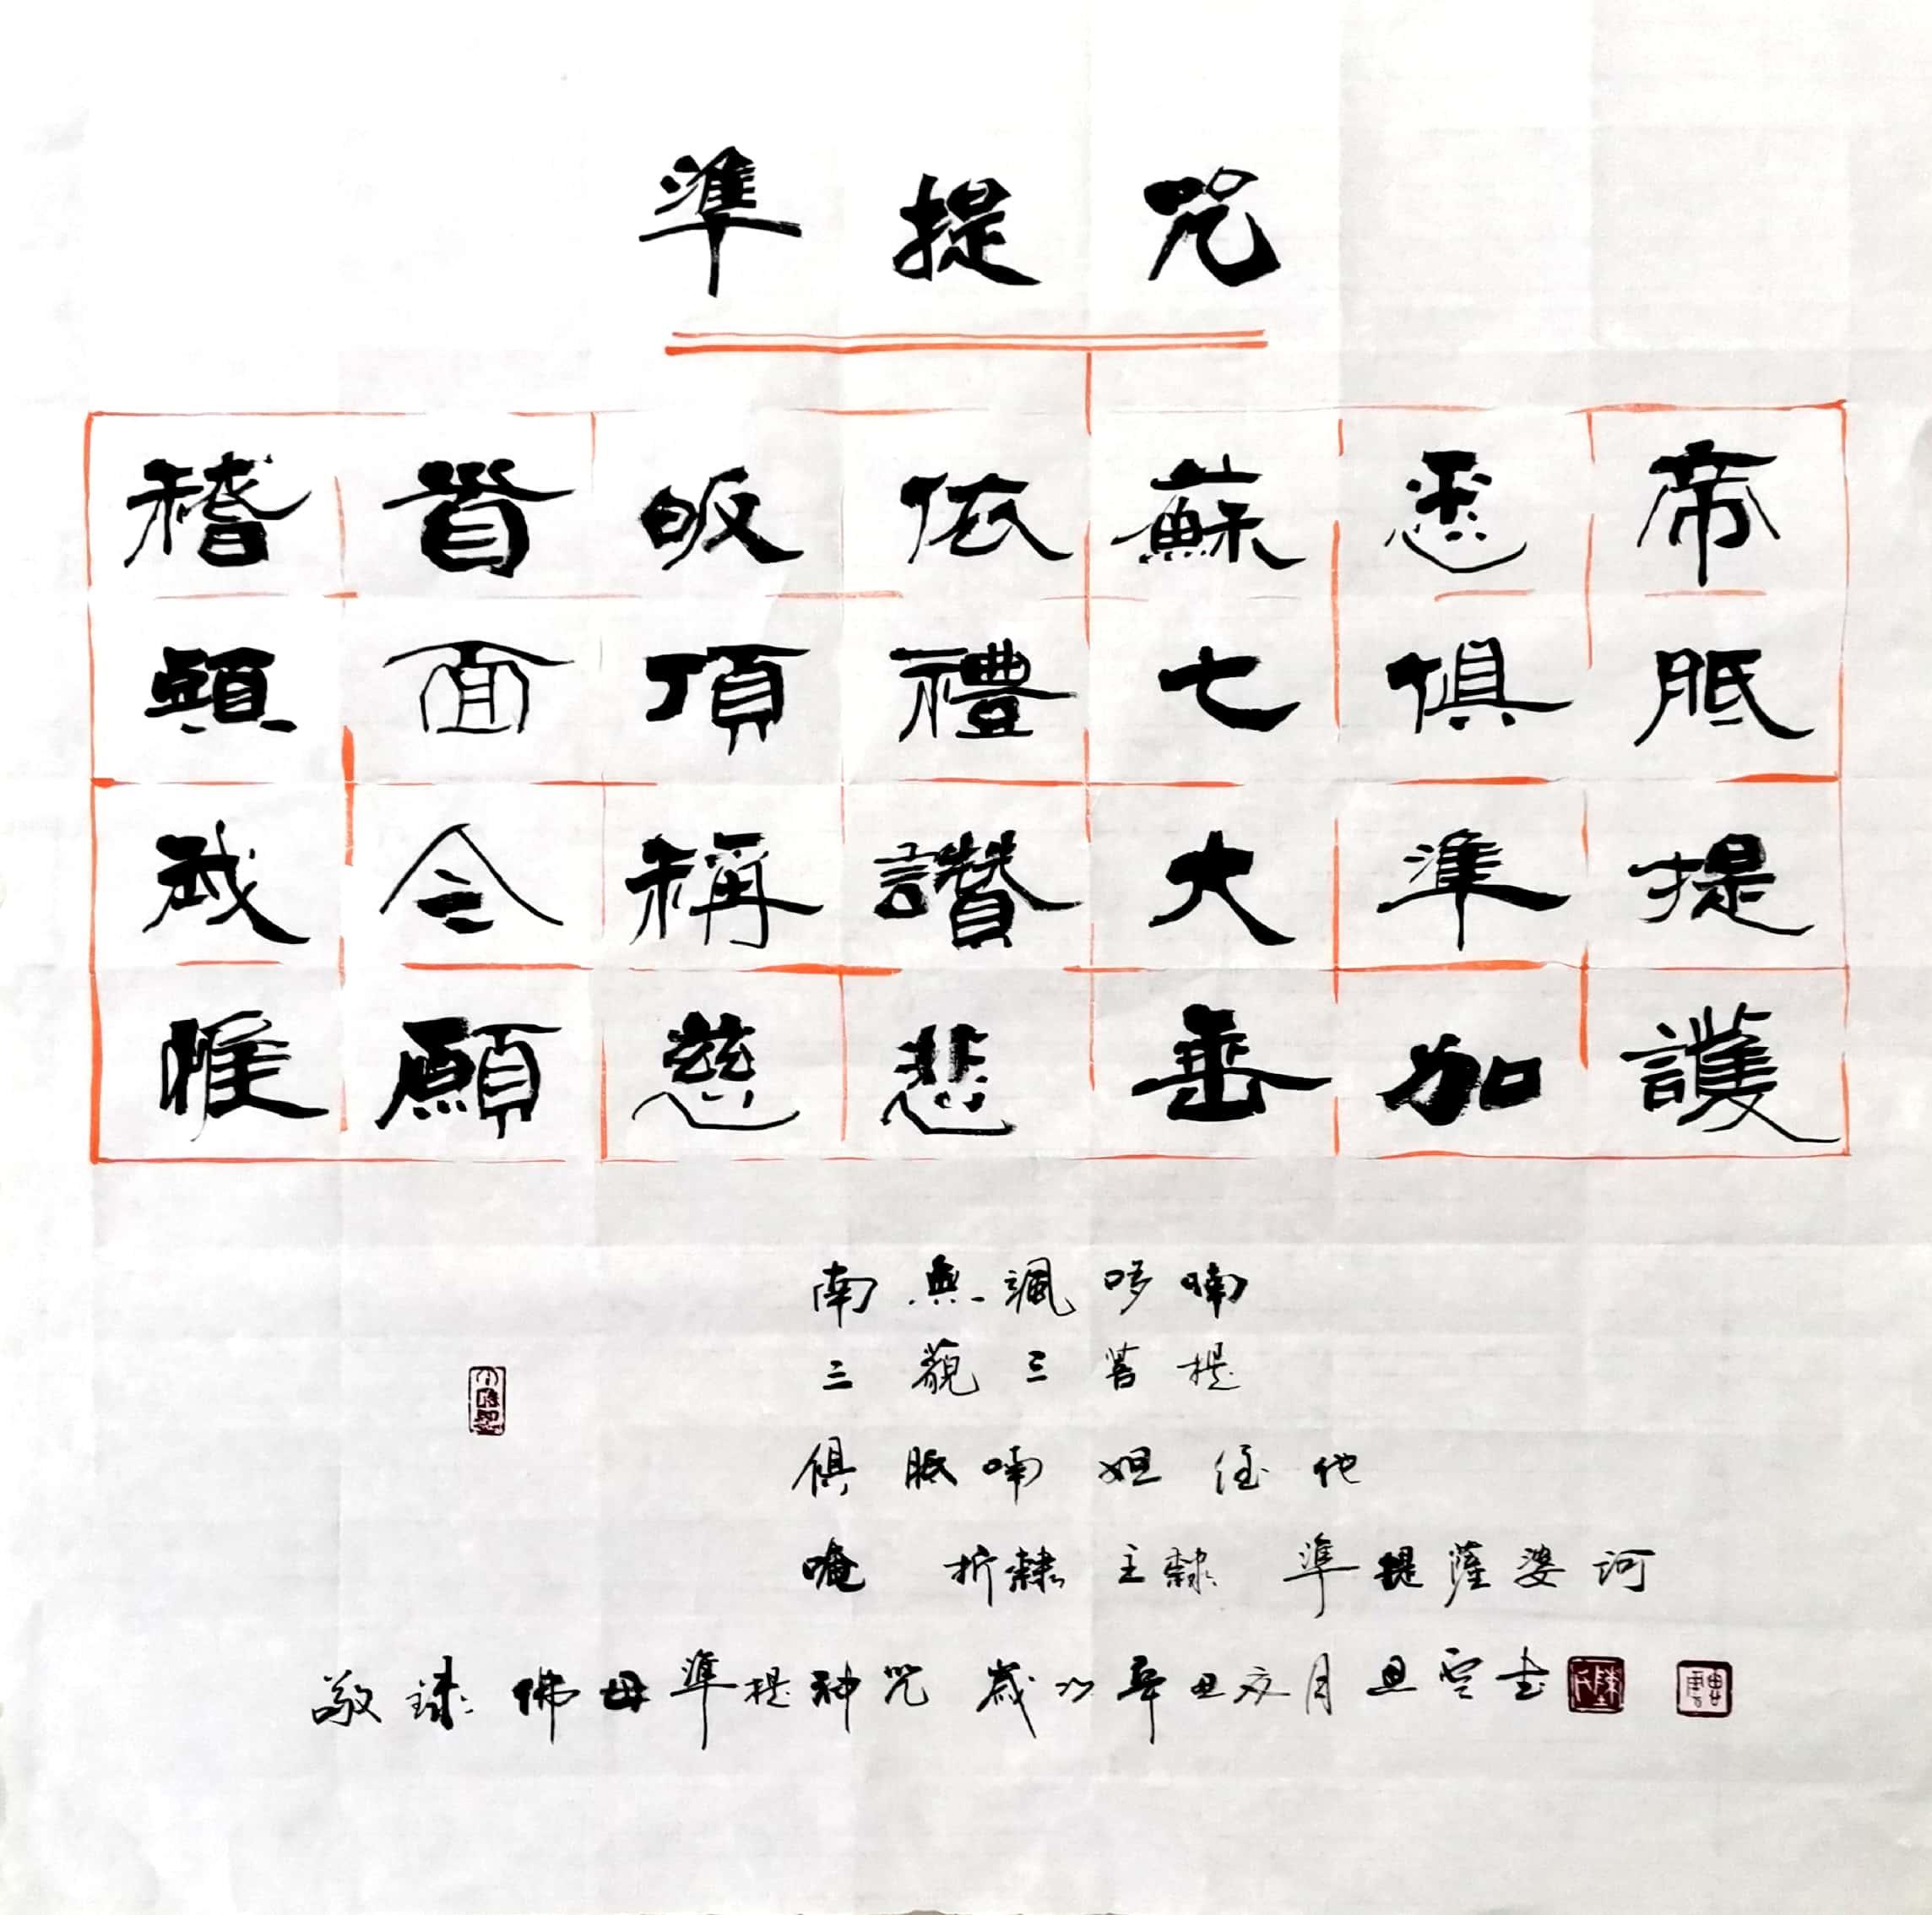 準提咒
稽首皈依蘇悉帝
頭面頂禮七俱胝
我今稱讚大準提
惟願慈悲垂加護
南無颯哆喃
三藐三菩提
俱胝喃 怛侄他
唵 折隸主隸 準提薩婆訶
敬錄佛母準提神咒 歲次辛丑 月 書